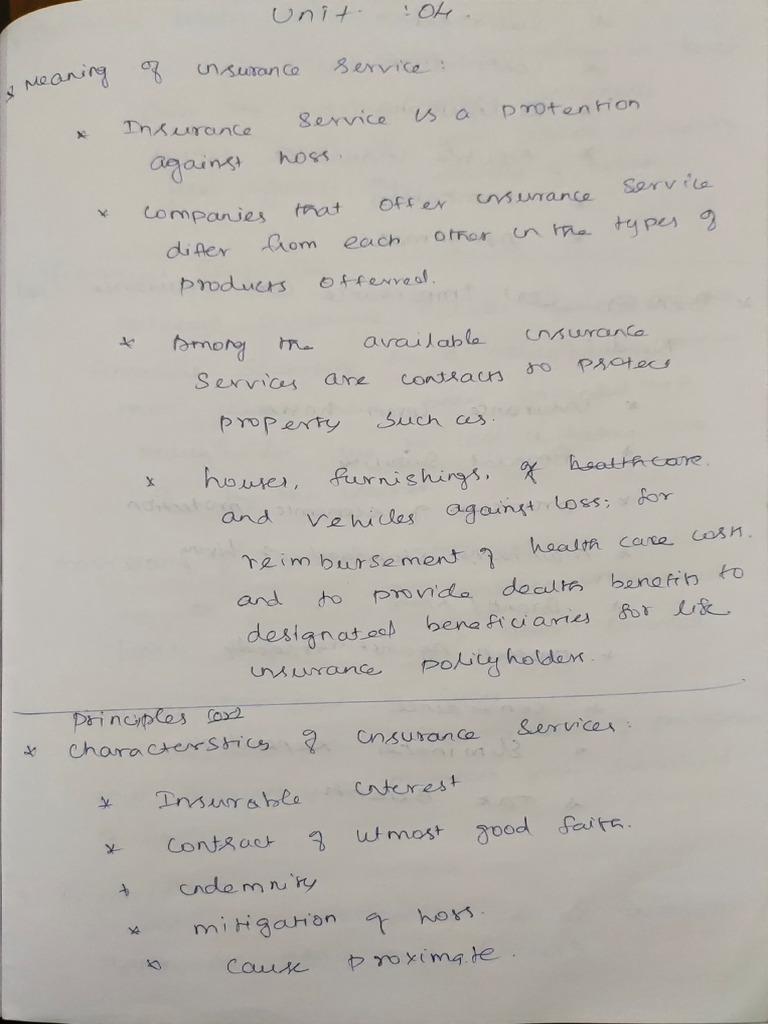 Unit :04.
* Meaning of insurance service:
* Insurance service is a protention
against loss.
* companies that offer insurance service
differ from each other in the types of
products offerred.
* Among the available insurance
services are contracts to protect
property such as.
* houses, furnishings, of healthcare
and vehicles against loss; for
reimbursement of health care costs.
and to provide death benefits to
designated beneficiaries for life
insurance policyholders.
principles (or)
* characterstics of insurance services:
* Insurable interest
* contract of utmost good faith.
* indemnity
* mitigation of loss.
* cause proximate.